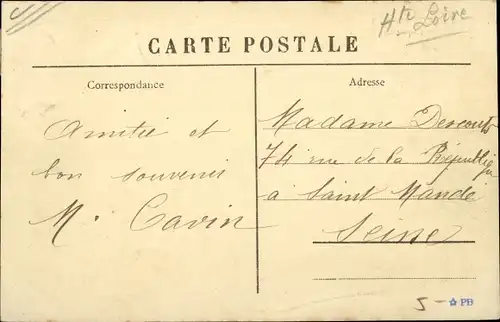 Hte Loire
CARTE POSTALE
Correspondance
Adresse
Amitié et
bon souvenir
M. Cavin
Madame
74 rue de la République
à Saint Mandé
Seine
5 -
PB